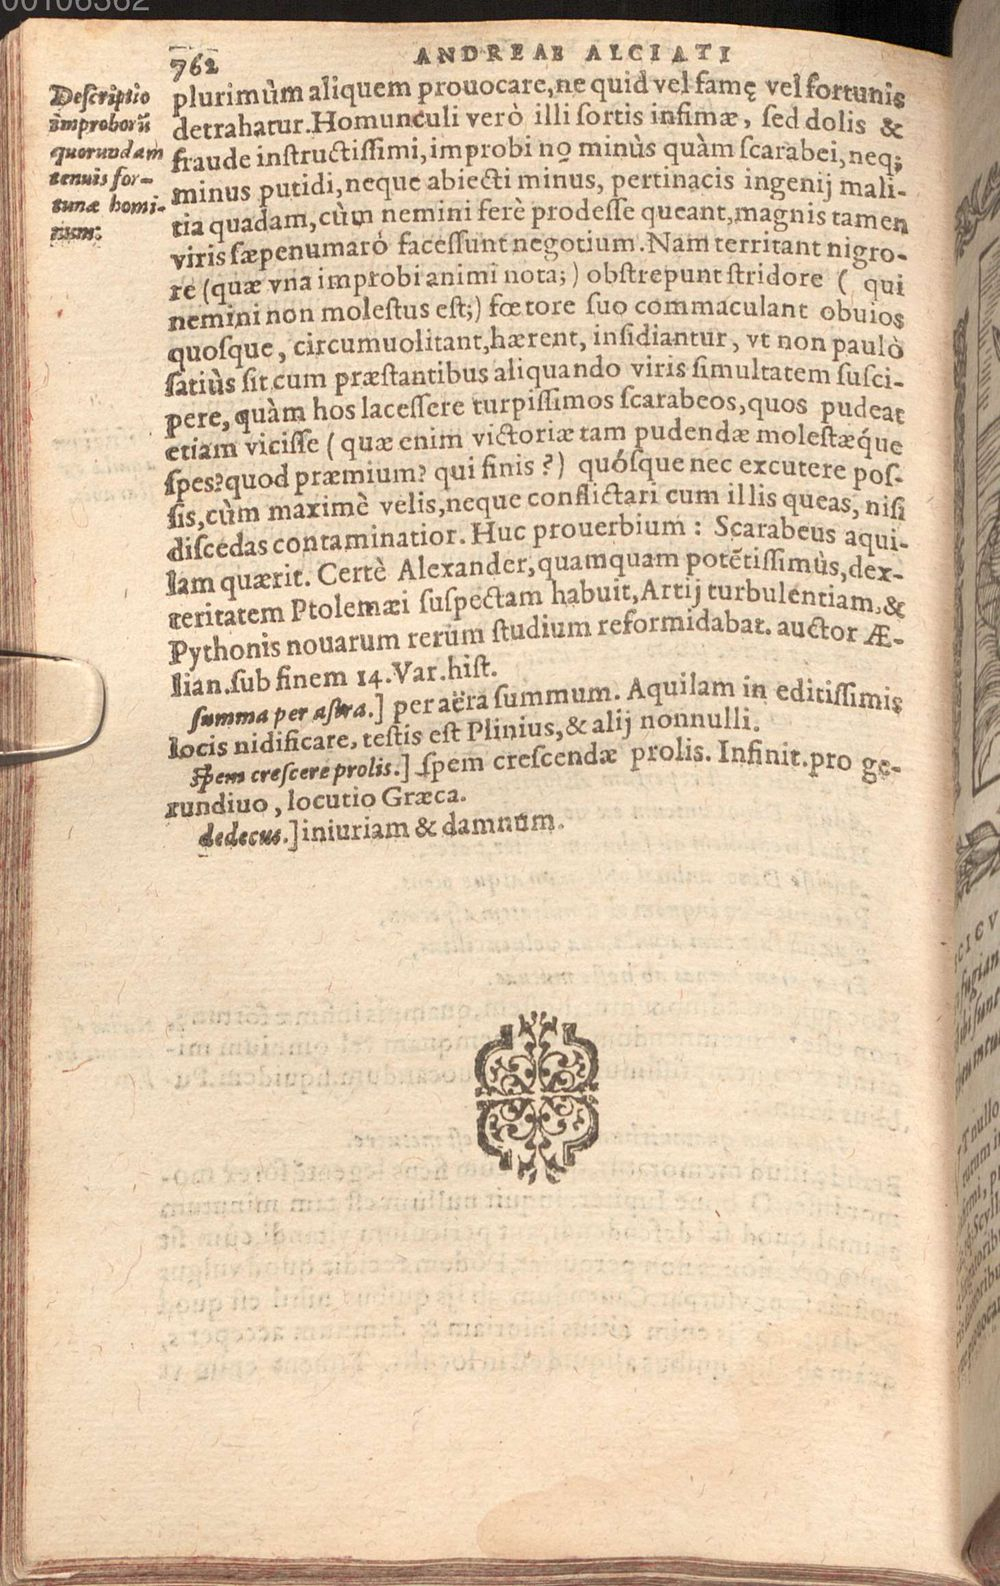 762
ANDREAE ALCIATI
Descriptio
improborũ
quorundam
tenuis for-
tunæ homi-
num.
plurimùm aliquem prouocare, ne quid vel famę vel fortunis
detrahatur. Homunculi verò illi sortis infimæ, sed dolis &
fraude instructissimi, improbi nō minùs quàm scarabei, neq;
minus putidi, neque abiecti minus, pertinacis ingenij mali-
tia quadam, cùm nemini ferè prodesse queant, magnis tamen
viris sæpenumarò facessunt negotium. Nam territant nigro-
re (quæ vna improbi animi nota;) obstrepunt stridore ( qui
nemini non molestus est;) fœtore suo commaculant obuios
quosque, circumuolitant, hærent, insidiantur, vt non paulò
satiùs sit cum præstantibus aliquando viris simultatem susci-
pere, quàm hos lacessere turpissimos scarabeos, quos pudeat
etiam vicisse (quæ enim victoriæ tam pudendæ molestæq́ue
spes? quod præmium? qui finis ?) quósque nec excutere pos-
sis, cùm maximè velis, neque conflictari cum illis queas, nisi
discedas contaminatior. Huc prouerbium : Scarabeus aqui-
lam quærit. Certè Alexander, quamquam potẽtissimùs, dex-
teritatem Ptolemæi suspectam habuit, Artij turbulentiam, &
Pythonis nouarum rerum studium reformidabat. auctor Æ-
lian. sub finem 14. Var. hist.
summa per astra.] per aëra summum. Aquilam in editissimis
locis nidificare, testis est Plinius, & alij nonnulli.
Spem crescere prolis.] spem crescendæ prolis. Infinit. pro ge-
rundiuo, locutio Græca.
dedecus.] iniuriam & damnum.